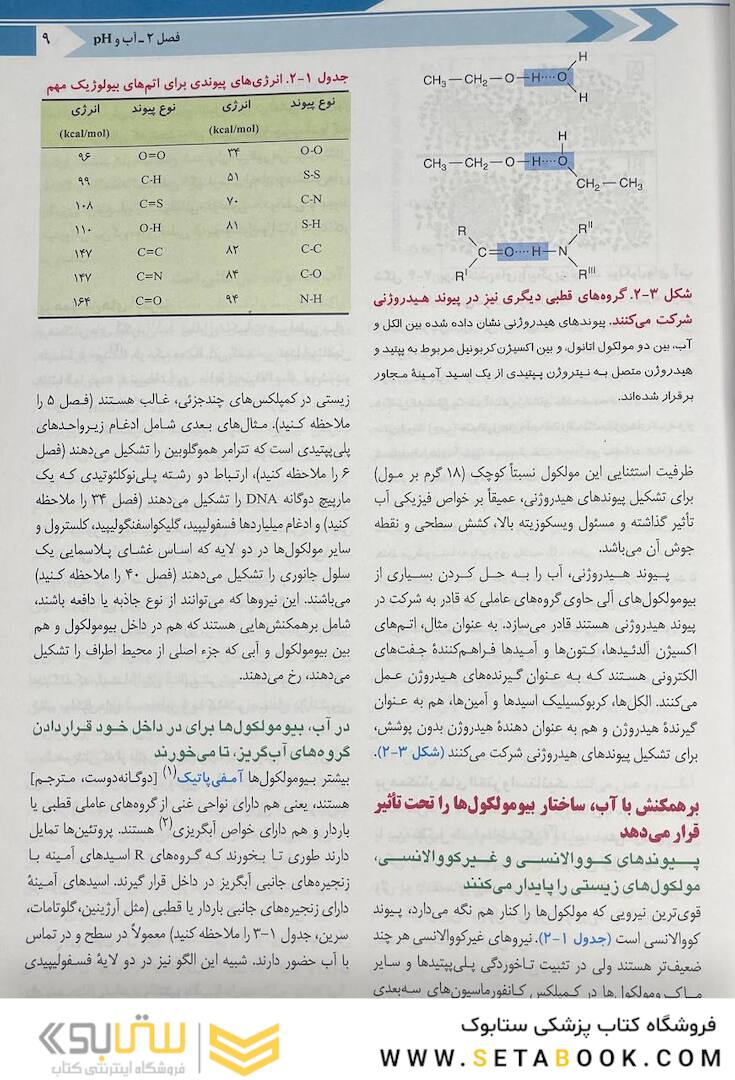 فصل ۲ ـ آب و pH
۹
CH₃—CH₂—O—H····O
H
H
CH₃—CH₂—O—H····O
H
CH₂—CH₃
R
C=O····H—N
Rᴵ
Rᴵᴵ
Rᴵᴵᴵ
شکل ۳-۲. گروه‌های قطبی دیگری نیز در پیوند هیدروژنی
شرکت می‌کنند. پیوندهای هیدروژنی نشان داده شده بین الکل و
آب، بین دو مولکول اتانول، و بین اکسیژن کربونیل مربوط به پپتید و
هیدروژن متصل به نیتروژن پپتیدی از یک اسید آمینهٔ مجاور
برقرار شده‌اند.
ظرفیت استثنایی این مولکول نسبتاً کوچک (۱۸ گرم بر مول)
برای تشکیل پیوندهای هیدروژنی، عمیقاً بر خواص فیزیکی آب
تأثیر گذاشته و مسئول ویسکوزیته بالا، کشش سطحی و نقطه
جوش آن می‌باشد.
پیوند هیدروژنی، آب را به حل کردن بسیاری از
بیومولکول‌های آلی حاوی گروه‌های عاملی که قادر به شرکت در
پیوند هیدروژنی هستند قادر می‌سازد. به عنوان مثال، اتم‌های
اکسیژن آلدئیدها، کتون‌ها و آمیدها فراهم‌کنندهٔ جفت‌های
الکترونی هستند که به عنوان گیرنده‌های هیدروژن عمل
می‌کنند. الکل‌ها، کربوکسیلیک اسیدها و آمین‌ها، هم به عنوان
گیرندهٔ هیدروژن و هم به عنوان دهندهٔ هیدروژن بدون پوشش،
برای تشکیل پیوندهای هیدروژنی شرکت می‌کنند (شکل ۳-۲).
برهمکنش با آب، ساختار بیومولکول‌ها را تحت تأثیر
قرار می‌دهد
پیوندهای کووالانسی و غیرکووالانسی،
مولکول‌های زیستی را پایدار می‌کنند
قوی‌ترین نیرویی که مولکول‌ها را کنار هم نگه می‌دارد، پیوند
کووالانسی است (جدول ۱-۲). نیروهای غیرکووالانسی هر چند
ضعیف‌تر هستند ولی در تثبیت تاخوردگی پلی‌پپتیدها و سایر
ماکرومولکول‌ها در کمپلکس کانفورماسیون‌های سه‌بعدی
جدول ۱-۲. انرژی‌های پیوندی برای اتم‌های بیولوژیک مهم
نوع پیوند انرژی (kcal/mol) نوع پیوند انرژی (kcal/mol)
O-O ۳۴ O=O ۹۶
S-S ۵۱ C-H ۹۹
C-N ۷۰ C=S ۱۰۸
S-H ۸۱ O-H ۱۱۰
C-C ۸۲ C=C ۱۴۷
C-O ۸۴ C=N ۱۴۷
N-H ۹۴ C=O ۱۶۴
زیستی در کمپلکس‌های چندجزئی، غالب هستند (فصل ۵ را
ملاحظه کنید). مثال‌های بعدی شامل ادغام زیرواحدهای
پلی‌پپتیدی است که تترامر هموگلوبین را تشکیل می‌دهند (فصل
۶ را ملاحظه کنید)، ارتباط دو رشته پلی‌نوکلئوتیدی که یک
مارپیچ دوگانه DNA را تشکیل می‌دهند (فصل ۳۴ را ملاحظه
کنید) و ادغام میلیاردها فسفولیپید، گلیکواسفنگولیپید، کلسترول و
سایر مولکول‌ها در دو لایه که اساس غشای پلاسمایی یک
سلول جانوری را تشکیل می‌دهند (فصل ۴۰ را ملاحظه کنید)
می‌باشند. این نیروها که می‌توانند از نوع جاذبه یا دافعه باشند،
شامل برهمکنش‌هایی هستند که هم در داخل بیومولکول و هم
بین بیومولکول و آبی که جزء اصلی از محیط اطراف را تشکیل
می‌دهند، رخ می‌دهند.
در آب، بیومولکول‌ها برای در داخل خود قراردادن
گروه‌های آب‌گریز، تا می‌خورند
بیشتر بیومولکول‌ها آمفی‌پاتیک(۱) [دوگانه‌دوست، مترجم]
هستند، یعنی هم دارای نواحی غنی از گروه‌های عاملی قطبی یا
باردار و هم دارای خواص آبگریزی(۲) هستند. پروتئین‌ها تمایل
دارند طوری تا بخورند که گروه‌های R اسیدهای آمینه با
زنجیره‌های جانبی آبگریز در داخل قرار گیرند. اسیدهای آمینهٔ
دارای زنجیره‌های جانبی باردار یا قطبی (مثل آرژینین، گلوتامات،
سرین، جدول ۱-۳ را ملاحظه کنید) معمولاً در سطح و در تماس
با آب حضور دارند. شبیه این الگو نیز در دو لایهٔ فسفولیپیدی
فروشگاه کتاب پزشکی ستابوک
WWW.SETABOOK.COM
ستابوک
فروشگاه اینترنتی کتاب